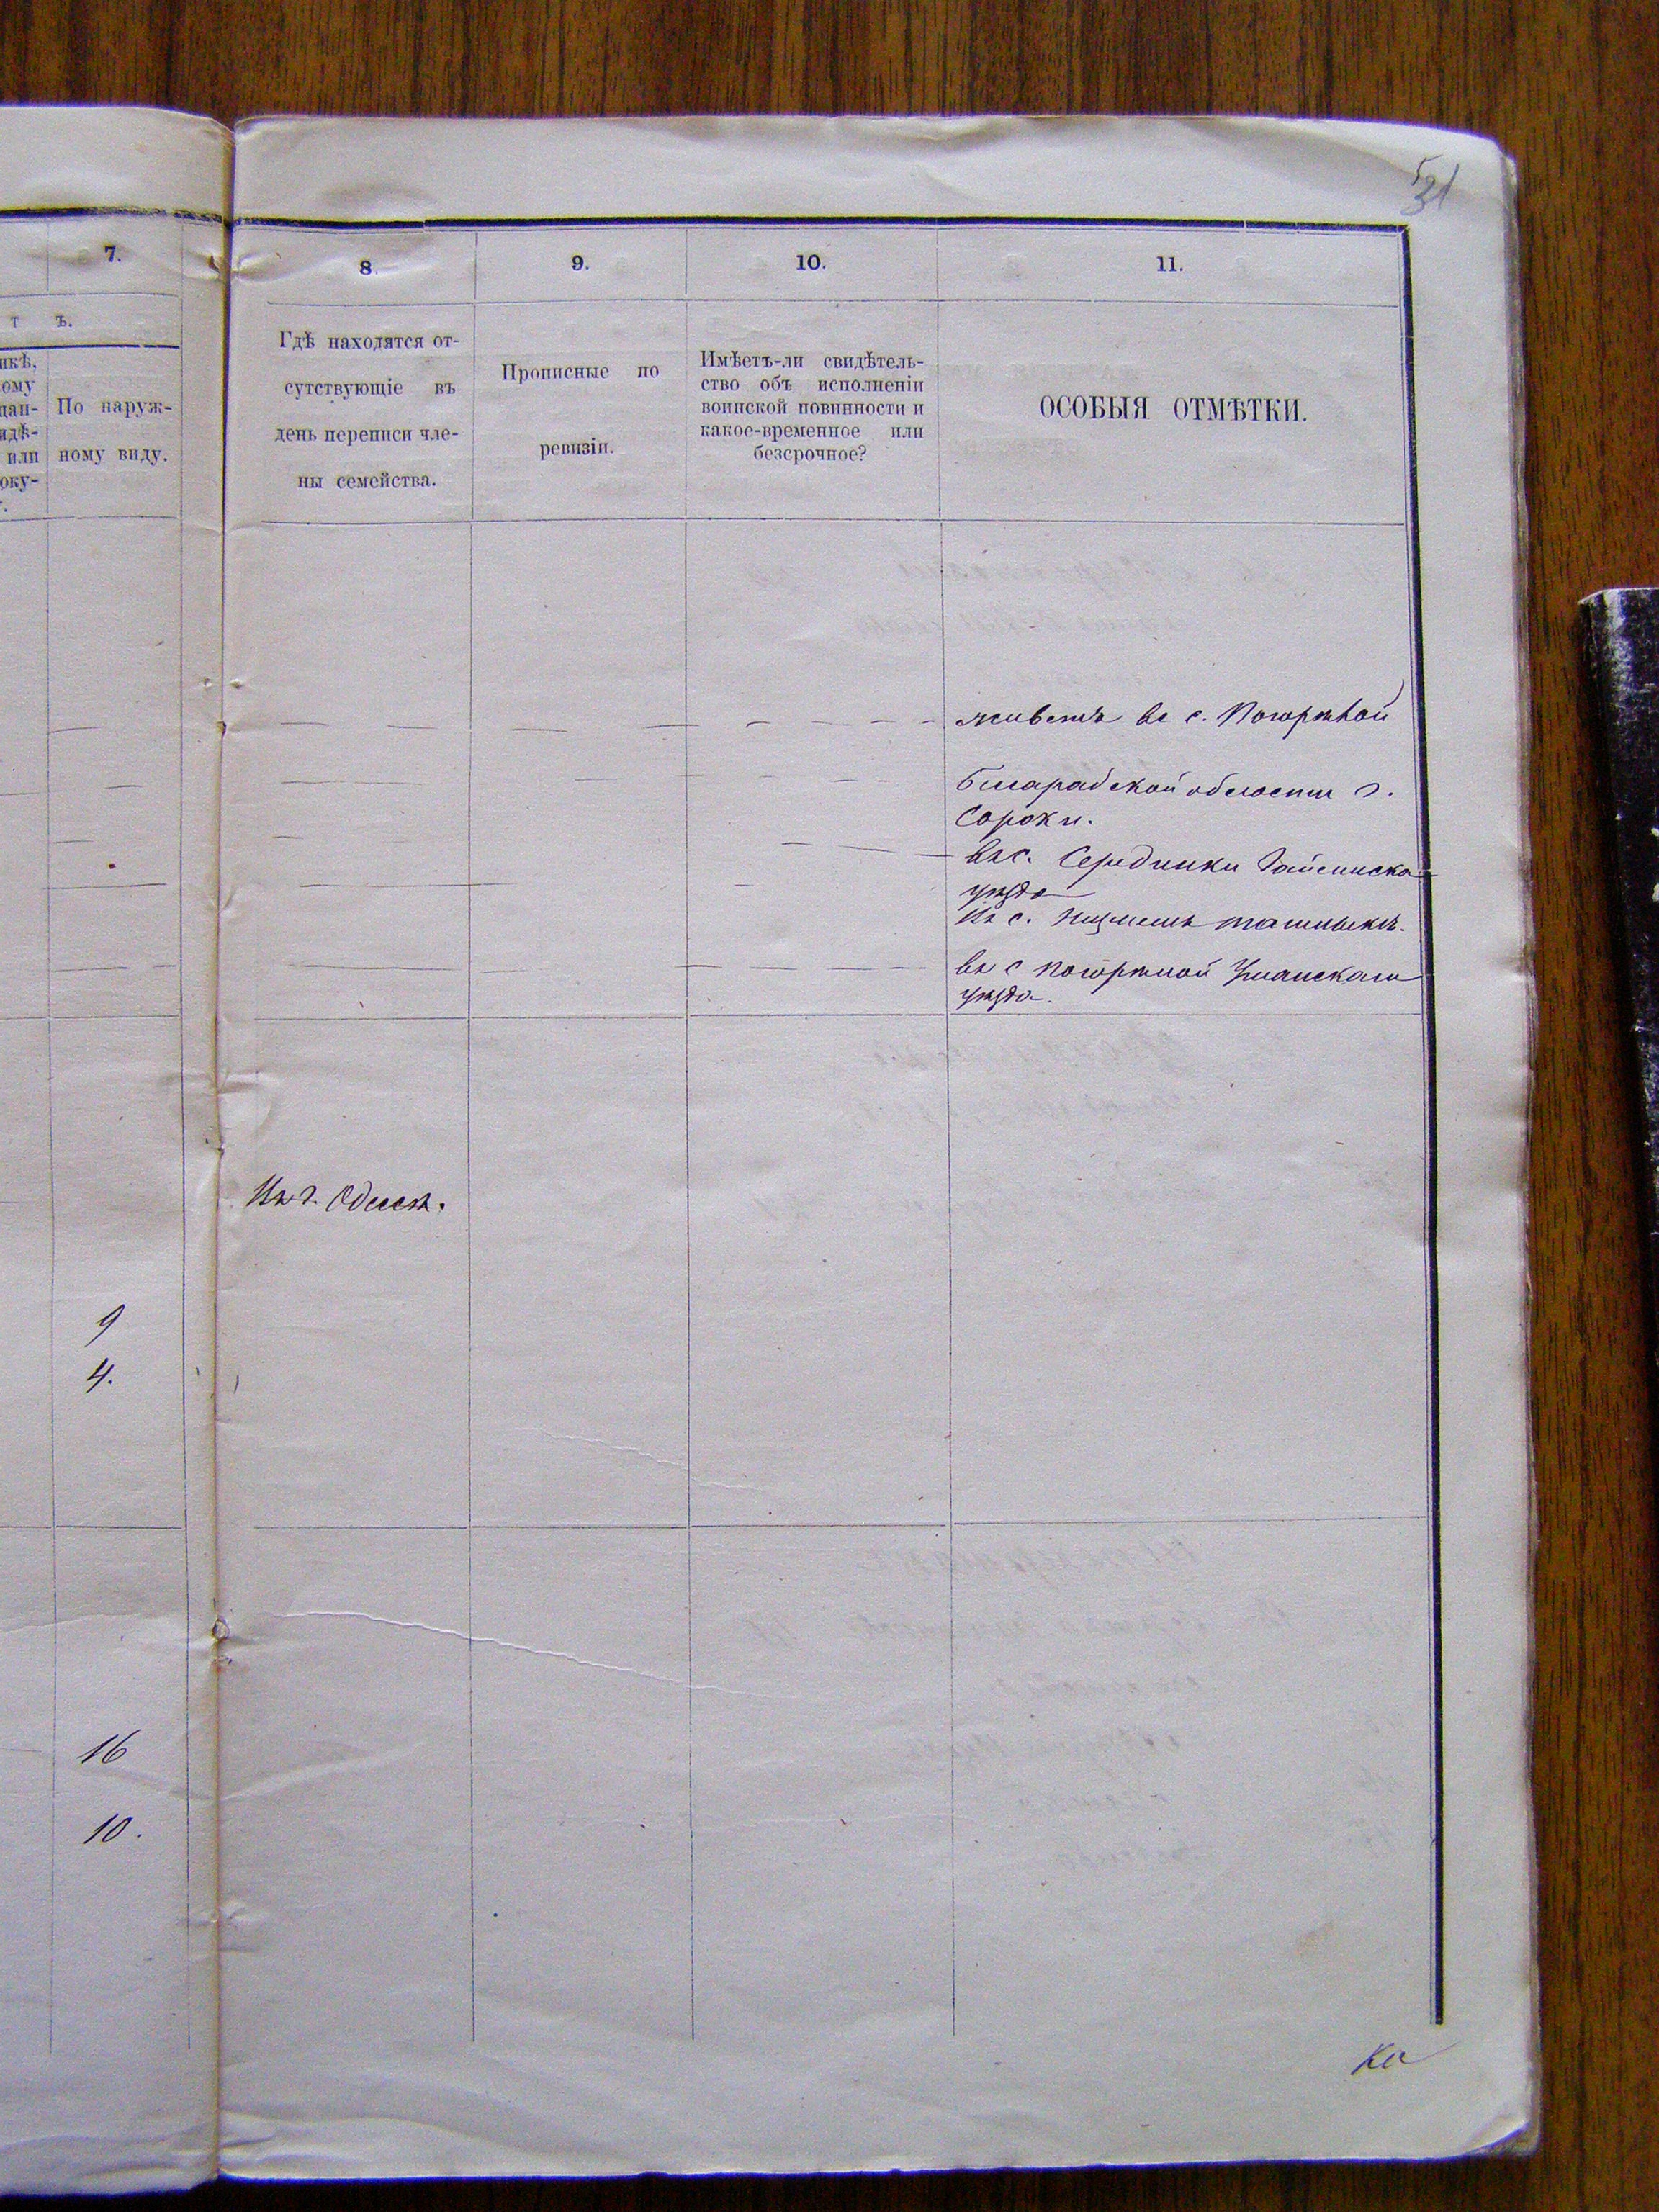 31
7.
8
9.
10.
11.
т ъ.
По наруж-
ному виду.
Гдѣ находятся от-
сутствующіе въ
день переписи чле-
ны семейства.
Прописные по
ревизіи.
Имѣетъ-ли свидѣтель-
ство объ исполненіи
воинской повинности и
какое-временное или
безсрочное?
ОСОБЫЯ ОТМѢТКИ.
живетъ въ с. Погорѣлой
Бесарабской области г.
Сороки.
въ с. Серединки Гайсинска
уѣзда
въ с. Ташлыкъ.
въ с Погорѣлой Уманскаго
уѣзда.
Въ г. Одессѣ.
9
4.
16
10.